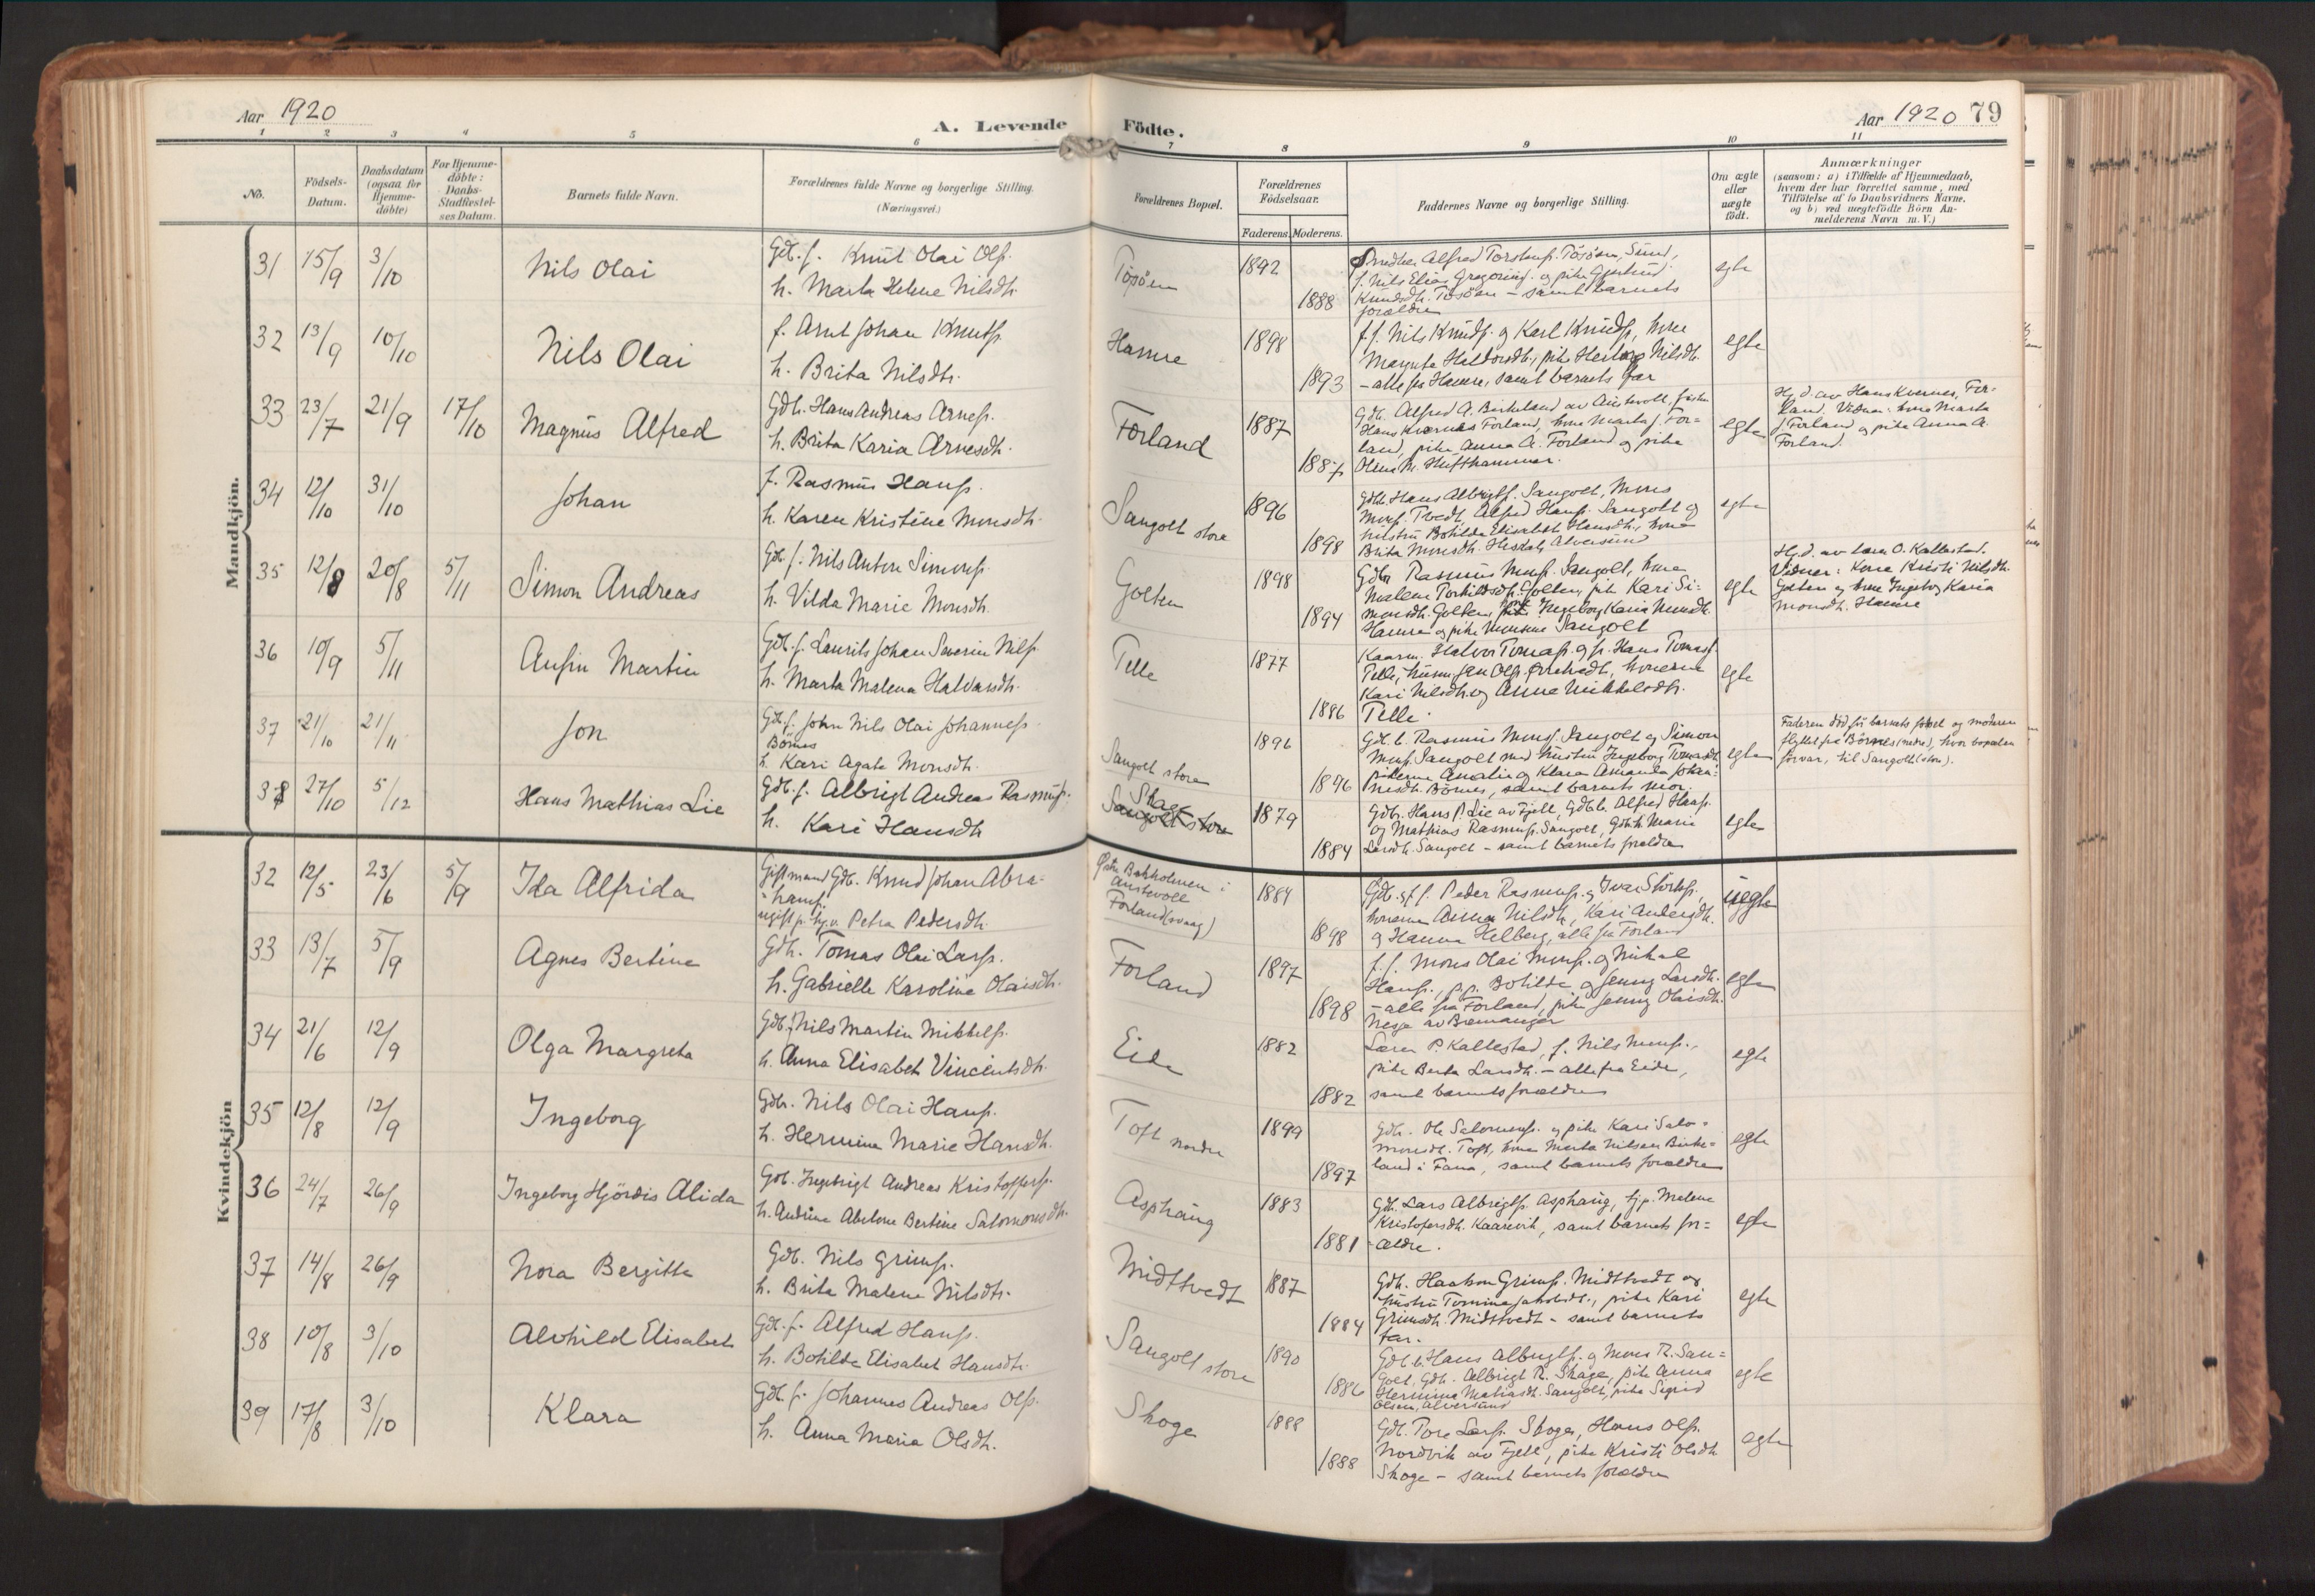 Aar 1920
A. Levende Födte.
Aar 1920 79
1 2 3 4 5 6 7 8 9 10 11
No.
Födsels-
Datum.
Daabsdatum
(ogsaa for
Hjemme-
döbte)
For Hjemme-
döbte:
Daabs-
Stadfæstel-
ses Datum.
Barnets fulde Navn.
Forældrenes fulde Navne og borgerlige Stilling.
(Næringsvei.)
Forældrenes Bopæl.
Forældrenes
Födselsaar.
Faderens. Moderens.
Faddernes Navne og borgerlige Stilling.
Om ægte
eller
uægte
födt.
Anmærkninger
(saasom: a) i Tilfælde af Hjemmedaab,
hvem der har forrettet samme, med
Tilföielse af to Daabsvidners Navne.
og b) ved uægtefödte Börn An-
melderens Navn m. V.)
Mandkjön.
31 15/9 3/10 Nils Olai
Gdb. f. Knut Olai Ols.
h. Marta Helene Nilsdtr.
Tösöen 1892 1888
samt barnets
forældre
egte
32 13/9 10/10 Nils Olai
f. Arnt Johan Knuts.
h. Brita Nilsdtr.
Hamre 1898 1893
f.f. Nils Knuds. og Karl Knuds., kone
- alle fra Hamre, samt barnets far
egte
33 23/7 21/9 17/10 Magnus Alfred
Gdb. Hans Andreas Arnes.
h. Brita Karia Arnesdtr.
Forland 1887 1887
Gdb. Alfred A. Birkeland av Austevoll, fisker
Hans Kvernes Forland, kone Marta J. For-
land, pike Anna A. Forland og pike
Olina M. Hufthammer.
egte
Hj. d. av Hans Kvernes, For-
land. Vidner: kone Marta
J. Forland og pike Anna A.
Forland.
34 12/10 31/10 Johan
f. Rasmus Hans.
h. Karen Kristine Monsdtr.
Sangolt store 1896 1898
Gdb. Hans Albrigts. Sangolt, Mons
Mons. Tvedt, Alfred Hans. Sangolt og
hustru Botilda Elisabet Hansdtr., kone
Brita Monsdtr. Alversund
egte
35 12/8 20/8 5/11 Simon Andreas
Gdb. f. Nils Anton Simons.
h. Vilda Marie Monsdtr.
Golten 1898 1894
Gdbr. Rasmus Mons. Sangolt, kone
Malene Torkildsdtr. Golten, pike Kari Si-
monsdtr. Golten, kone Ingeborg Karia Monsdtr.
Hamre og pike Monsine Sangolt
egte
Hj. d. av lærer O. Kallestad.
Vidner: Kone Kristi Nilsdtr.
Golten og kone Ingeborg Karia
Monsdtr. Hamre
36 10/9 5/11 Ansin Martin
Gdb. f. Laurits Johan Severin Nils.
h. Marta Malena Halvarsdtr.
Telle 1877 1886
Kaarm. Halvor Tomas. og f. Hans Tomas.
Kari Nilsdtr. og Anna Mikkelsdtr.
Telle.
egte
37 21/10 21/11 Jon
Gdb. f. John Nils Olai Johannes.
Börnes
h. Kari Agate Monsdtr.
Sangolt store 1896 1896
Gdb. b. Rasmus Mons. Sangolt og Simon
Mons. Sangolt med hustru Ingeborg Tomasdtr.
pikerne Amalia og Klara Amanda Johan-
nesdtr. Börnes, samt barnets mor.
egte
Faderen död før barnets fødsel og moderen
flyttet fra Börnes (nedre), hvor bopælen
før var, til Sangolt (store).
38 27/10 5/12 Hans Mathias Lie
Gdb. f. Albrigt Andreas Rasmus.
h. Kari Hansdtr
Skage
Sangolt store 1879 1884
Gdb. Hans P. Lie av Fjell, Gdb.b. Alfred Hans.
og Mathias Rasmus. Sangolt, Gdb.h. Marie
Larsdtr. Sangolt - samt barnets forældre
egte
Kvindekjön
32 12/5 23/6 5/9 Ida Alfrida
Gift mand Gdb. Knud Johan Abra-
hams.
ugift p. hj.v. Petra Pedersdtr.
Østre Bakholmen i
Austevoll
Forland (vaag) 1884 1898
Gdb. og f.f. Peder Rasmus. og Ivar Storks.,
konerne Anna Nilsdtr., Kari Andersdtr.
og Hanna Helberg, alle fra Forland
uegte
33 13/7 5/9 Agnes Bertine
Gdb. Tomas Olai Lars.
h. Gabrielle Karoline Olaisdtr.
Forland 1897 1898
f.f. Mons Olai Mons. og Mikal
Hans., p.p. Botilde og Jenny Larsdtr.
- alle fra Forland, pike Jenny Olaisdtr.
Nesje av Bremanger
egte
34 21/6 12/9 Olga Margreta
Gdb. f. Nils Martin Mikkels.
h. Anna Elisabet Vincentsdtr.
Eide 1882 1882
Lærer P. Kallestad, f. Nils Mons.,
pike Berta Larsdtr. - alle fra Eide,
samt barnets forældre
egte
35 12/8 12/9 Ingeborg
Gdbr. Nils Olai Hans.
h. Hermine Marie Hansdtr.
Toft nordre 1899 1897
Gdb. Ole Salomons. og pike Kari Salo-
monsdtr. Toft, kone Marta Nilsen Birke-
land i Fana, samt barnets forældre
egte
36 24/7 26/9 Ingeborg Hjördis Alida
Gdb. Ingebrigt Andreas Kristoffers.
h. Andrine Abelone Bertine Salomonsdtr.
Asphaug 1883 1881
Gdb. Lars Albrigts. Asphaug, hj.p. Malene
Kristofersdtr. Kaarevik, samt barnets for-
ældre.
egte
37 14/8 26/9 Nora Bergitte
Gdb. Nils Grims.
h. Brita Malene Nilsdtr.
Midttvedt 1887 1884
Gdb. Haakon Grims. Midttvedt og
hustru Tomine Jakobsdtr., pike Kari
Grimsdtr. Midttvedt - samt barnets
far.
egte
38 10/8 3/10 Alvhild Elisabet
Gdb. f. Alfred Hans.
h. Botilde Elisabet Hansdtr.
Sangolt store 1890 1886
Gdb.b. Hans Albrigts. og Mons R. San-
golt, Gdb. Albrigt R. Skage, pike Anna
Hermina Matiasdtr. Sangolt, pike Sigrid
Olsen, Alversund
egte
39 17/8 3/10 Klara
Gdb. f. Johannes Andreas Ols.
h. Anna Maria Olsdtr.
Skoge 1888 1888
Gdb. Tore Lars. Skoge, Hans Ols.
Nordvik av Fjell, pike Kristi Olsdtr.
Skoge - samt barnets forældre
egte